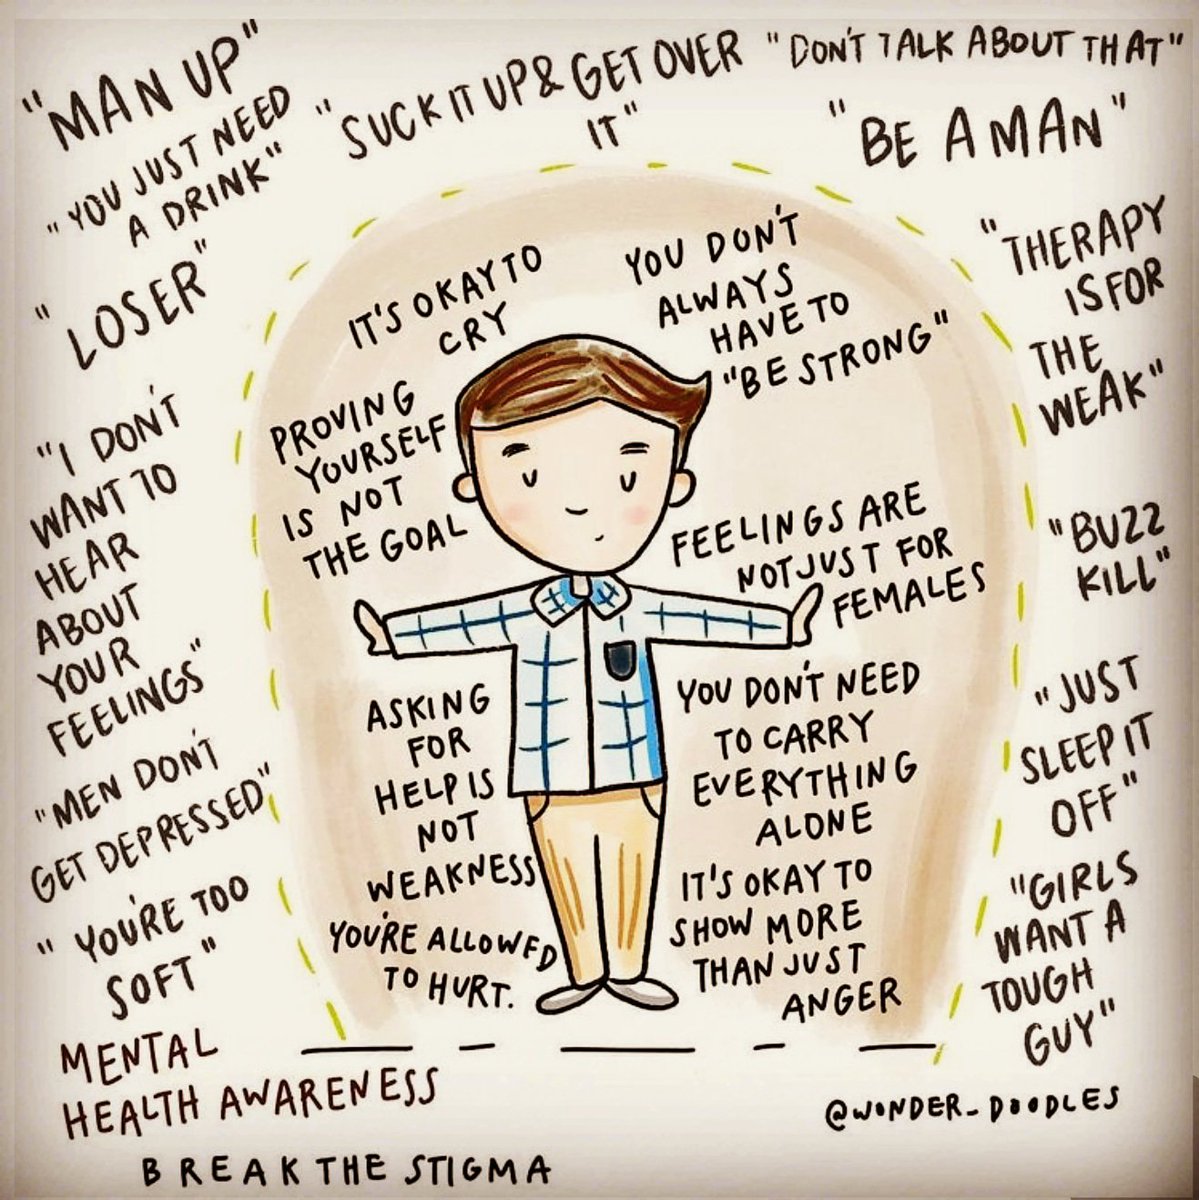 "MAN UP"
"YOU JUST NEED
A DRINK"
"SUCK IT UP & GET OVER
IT"
"DON'T TALK ABOUT THAT"
"BE A MAN"
"LOSER"
"THERAPY
IS FOR
THE
WEAK"
IT'S OKAY TO
CRY
YOU DON'T
ALWAYS
HAVE TO
"BE STRONG"
PROVING
YOURSELF
IS NOT
THE GOAL
FEELINGS ARE
NOT JUST FOR
FEMALES
"I DON'T
WANT TO
HEAR
ABOUT
YOUR
FEELINGS"
"BUZZ
KILL"
ASKING
FOR
HELP IS
NOT
WEAKNESS
YOU DON'T NEED
TO CARRY
EVERYTHING
ALONE
"JUST
SLEEP IT
OFF"
"MEN DON'T
GET DEPRESSED"
YOU'RE ALLOWED
TO HURT.
IT'S OKAY TO
SHOW MORE
THAN JUST
ANGER
"GIRLS
WANT A
TOUGH
GUY"
"YOU'RE TOO
SOFT"
MENTAL
HEALTH AWARENESS
BREAK THE STIGMA
@WONDER_DOODLES